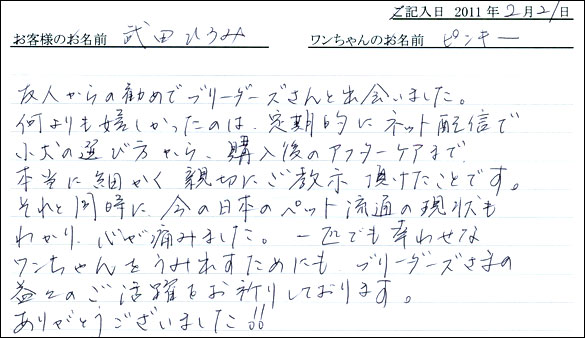 ご記入日 2011年2月21日
お客様のお名前 武田ひろみ ワンちゃんのお名前 ピンキー
友人からの勧めでブリーダーズさんと出会いました。
何よりも嬉しかったのは、定期的にネット配信で
小犬の選び方から、購入後のアフターケアまで、
本当に細かく親切にご教示頂けたことです。
それと同時に、今の日本のペット流通の現状も
わかり、心が痛みました。一匹でも幸わせな
ワンちゃんをうみ出すためにも、ブリーダーズさまの
益々のご活躍をお祈りしております。
ありがとうございました!!